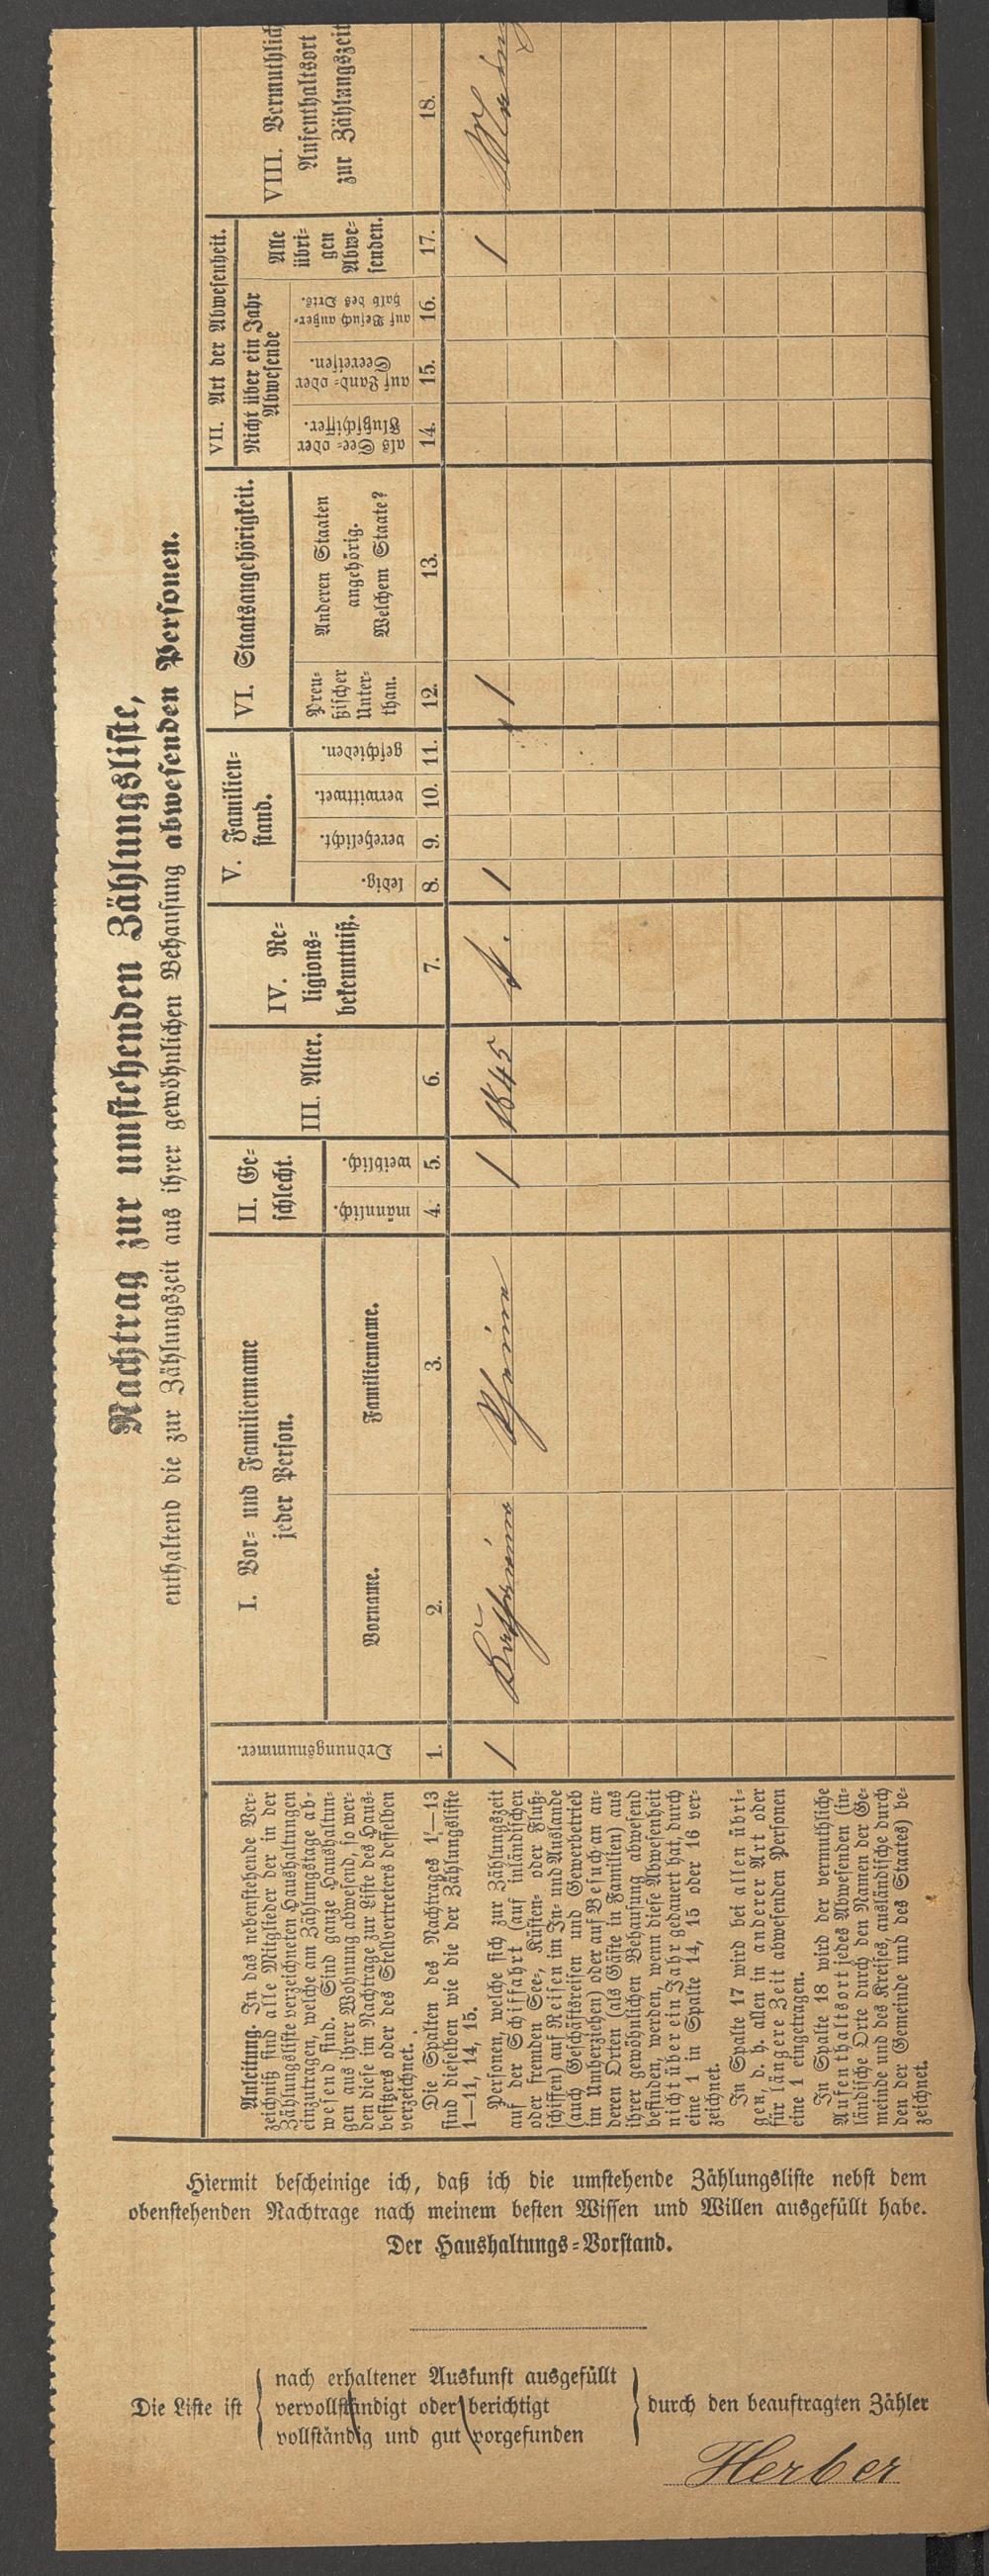 Nachtrag zur umstehenden Zählungsliste,
enthaltend die zur Zählungszeit aus ihrer gewöhnlichen Behausung abwesenden Personen.
Anleitung. In das nebenstehende Ver-
zeichniß sind alle Mitglieder der in der
Zählungsliste verzeichneten Haushaltungen
einzutragen, welche am Zählungstage ab-
wesend sind. Sind ganze Haushaltun-
gen aus ihrer Wohnung abwesend, so wer-
den diese im Nachtrage zur Liste des Haus-
besitzers oder des Stellvertreters desselben
verzeichnet.
Die Spalten des Nachtrages 1—13
sind dieselben wie die der Zählungsliste
1—11, 14, 15.
Personen, welche sich zur Zählungszeit
auf der Schiffahrt (auf inländischen
oder fremden See-, Küsten- oder Fluß-
schiffen) auf Reisen im In- und Auslande
(auch Geschäftsreisen und Gewerbetrieb
im Umherziehen) oder auf Besuch an an-
deren Orten (als Gäste in Familien) aus
ihrer gewöhnlichen Behausung abwesend
befinden, werden, wenn diese Abwesenheit
nicht über ein Jahr gedauert hat, durch
eine 1 in Spalte 14, 15 oder 16 ver-
zeichnet.
In Spalte 17 wird bei allen übri-
gen, d. h. allen in anderer Art oder
für längere Zeit abwesenden Personen
eine 1 eingetragen.
In Spalte 18 wird der vermuthliche
Aufenthaltsort jedes Abwesenden (in-
ländische Orte durch den Namen der Ge-
meinde und des Kreises, ausländische durch
den der Gemeinde und des Staates) be-
zeichnet.
Ordnungsnummer.
1.
I. Vor- und Familienname
jeder Person.
Vorname.
2.
Familienname.
3.
II. Ge-
schlecht.
männlich.
4.
weiblich.
5.
III. Alter.
6.
IV. Re-
ligions-
bekenntniß.
7.
V. Familien-
stand.
ledig.
8.
verehelicht.
9.
verwittwet.
10.
geschieden.
11.
VI. Staatsangehörigkeit.
Preu-
ßischer
Unter-
than.
12.
Anderen Staaten
angehörig.
Welchem Staate?
13.
VII. Art der Abwesenheit.
Nicht über ein Jahr
Abwesende
als See- oder
Flußschiffer.
14.
auf Land- oder
Seereisen.
15.
auf Besuch außer-
halb des Orts.
16.
Alle
übri-
gen
Abwe-
senden.
17.
VIII. Vermuthlich
Aufenthaltsort
zur Zählungszeit
18.
1 1 1845 1 1 1
Hiermit bescheinige ich, daß ich die umstehende Zählungsliste nebst dem
obenstehenden Nachtrage nach meinem besten Wissen und Willen ausgefüllt habe.
Der Haushaltungs-Vorstand.
Die Liste ist
nach erhaltener Auskunft ausgefüllt
vervollständigt oder berichtigt
vollständig und gut vorgefunden
durch den beauftragten Zähler
Herber